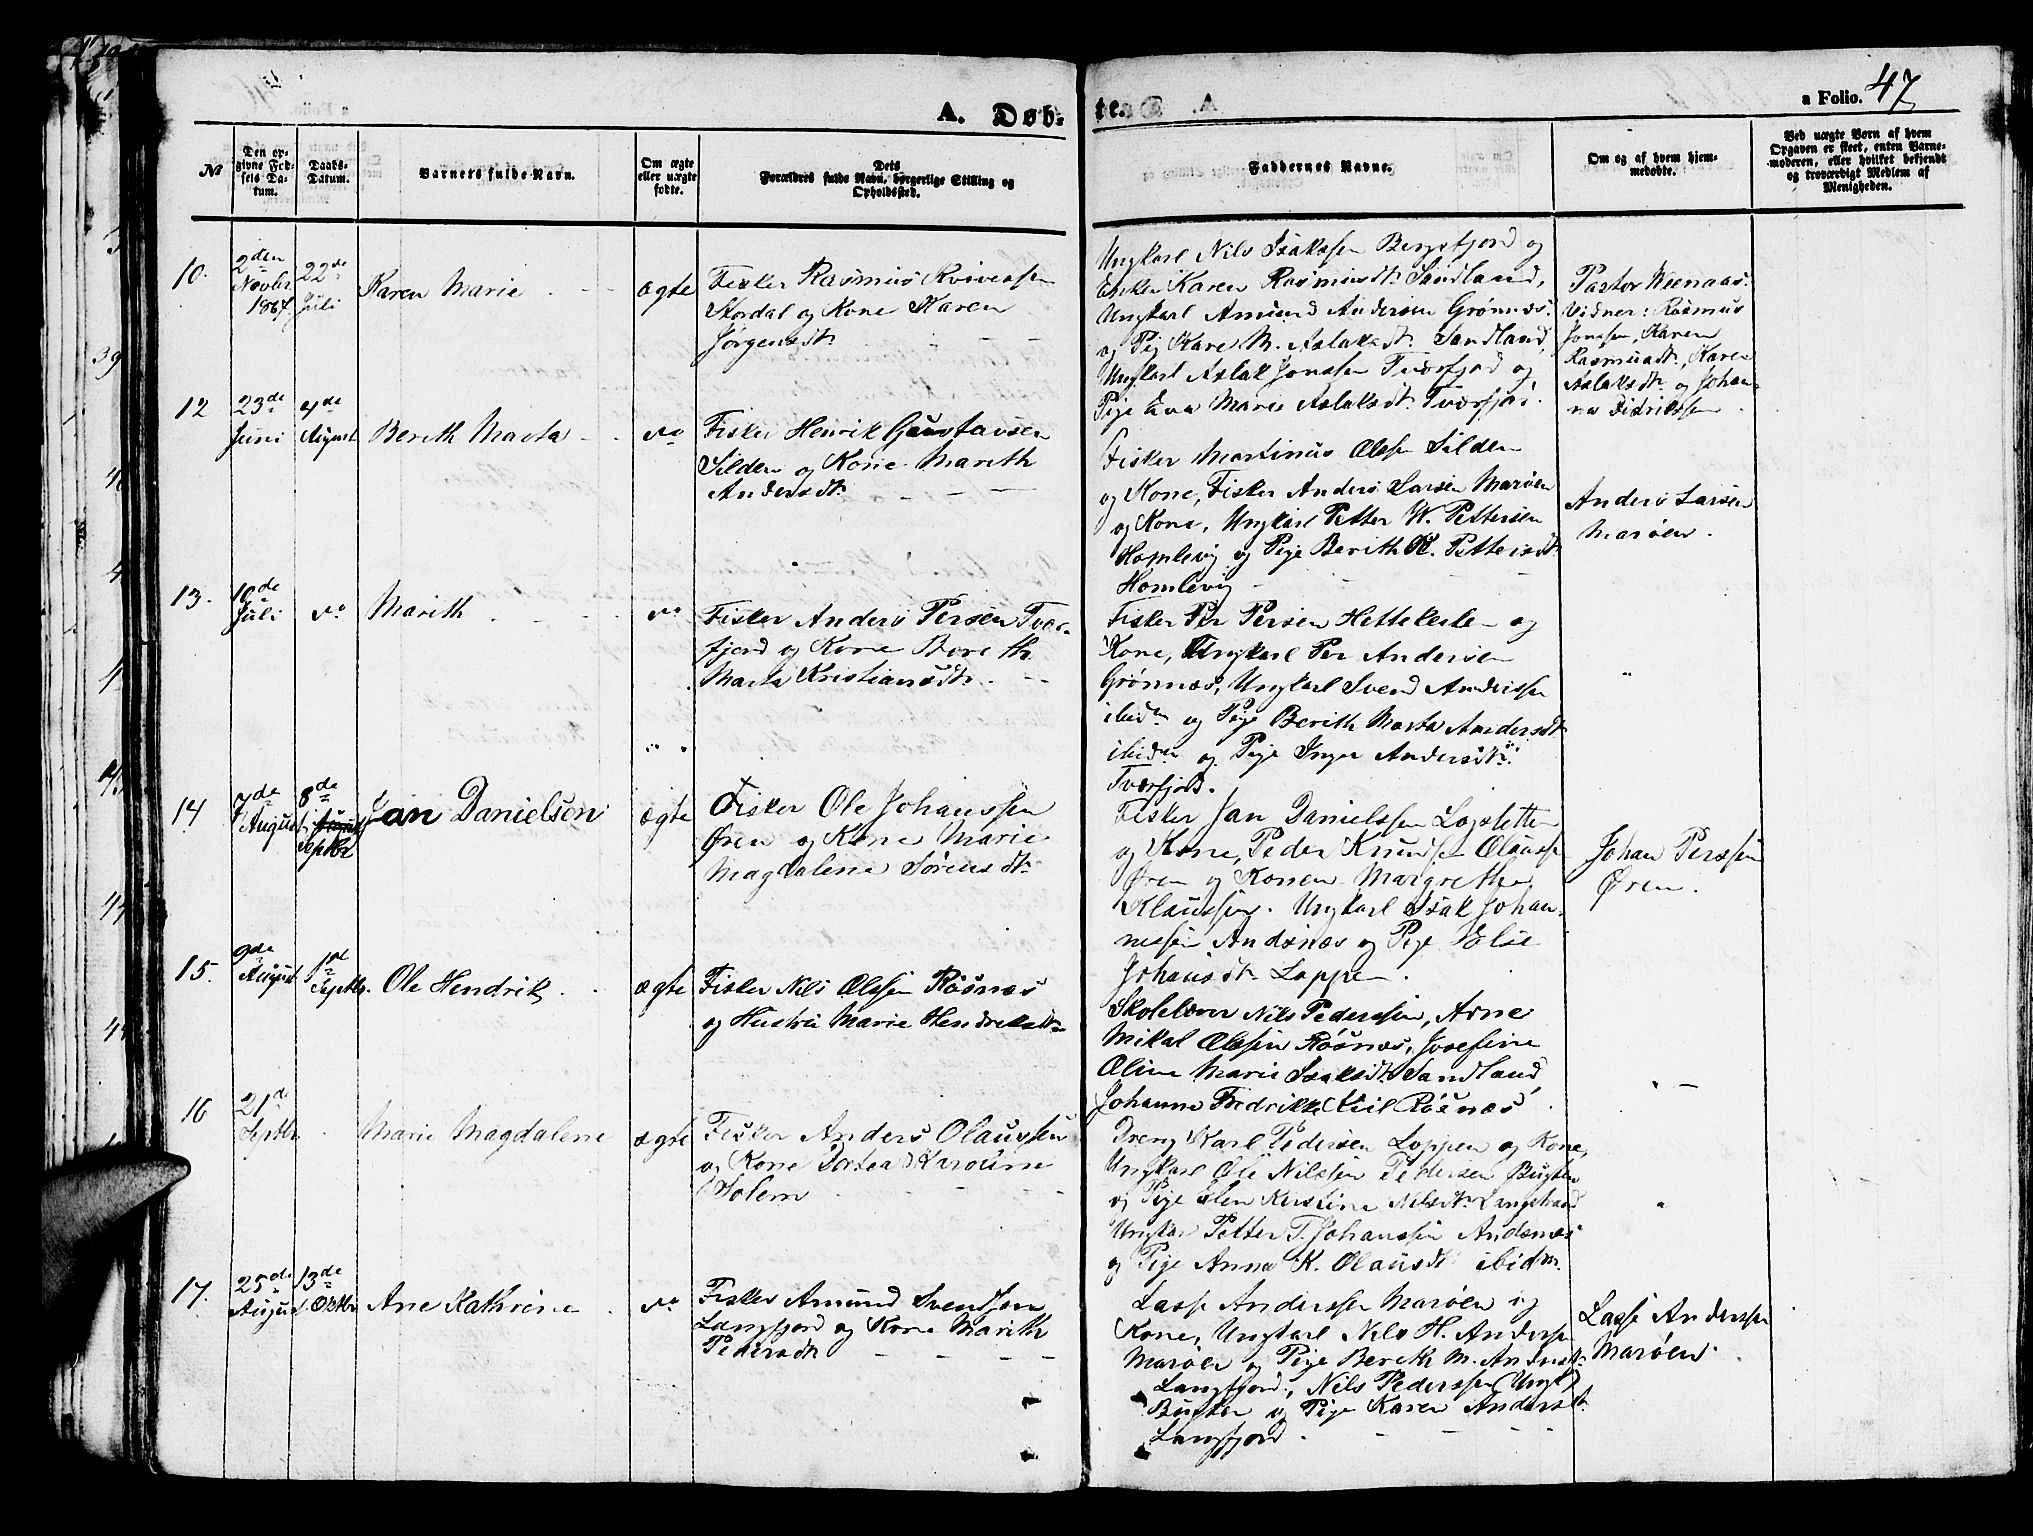 A. Døb- te. A. a Folio. 47
№
Den opgivne Fødsels Datum.
Daabs-Datum.
Barnets fulde Navn.
Om ægte eller uægte fødte.
Dets Forældres fulde Navn, borgerlige Stilling og Opholdssted.
Faddernes Navne.
Om og af hvem hjemmedøbte.
Ved uægte Born af hvem Opgaven er skeet, enten Barnemoderen, eller hvilket bekjendt og troværdigt Medlem af Menigheden.
10. 2den Novbr 1867
22de Juli
Karen Marie
ægte
Fisker Rasmus Kvivessen
Stordal og Kone Karen
Jörgensdtr
Ungkarl Nils Isakssen Bergsfjord og
Enken Karen Rasmusdtr Sandland,
Ungkarl Amund Andersen Grönnæs
og Pig Kare M. Aslaksdtr Sandland,
Ungkarl Aslak Jonssen Tværfjord og
Pige Eva Marie Aslaksdtr Tværfjor.
Pastor Weenaas.
Vidner: Rasmus
Jonssen, Karen
Rasmusdtr, Karen
Aslaksdtr og Johan-
na Didrikssen
12 23de Juni
4de August
Berith Marta
do
Fisker Henrik Gustavsen
Silden og Kone Marith
Andersdtr
Fisker Martinus Olssen Silden
og Kone, Fisker Anders Larsen Maröen
og Kone, Ungkarl Petter W. Pettersen
Homlevig og Pige Berith K. Pettersdtr
Homlevig
Anders Larsen
Maröen.
13. 10de Juli
do
Marith
do
Fisker Anders Persen Tvær-
fjord og Kone Berith
Marta Kristiansdtr.
Fisker Per Persen Hettekeile og
Kone, Ungkarl Per Andersen
Grönnæs, Ungkarl Svend Anderssen
ibidm og Pige Berith Marta Andersdtr
ibidm og Pige Inger Andersdtr
Tværfjord.
14 7de August
8de August Septbr
Jan Danielson
ægte
Fisker Ole Johanssen
Øren og Kone Marie
Magdalene Sørensdtr
Fisker Jan Danielssen Logsletten
og Kone, Peder Knudsen Olaussen
Øren og Konen Margrethe
Klaussen. Ungkarl Isak Johan-
nessen Andsnæs og Pige Else
Johansdtr Loppen.
Johan Perssen
Øren.
15. 9de August
1ste Septbr.
Ole Hendrik
ægte
Fisker Nils Olssen Rösnæs
og Hustru Marie Hendreksdtr
Skolelærer Nils Pederssen, Arne
Mikal Olssen Rösnæs, Josefine
Oline Marie Isaksdtr Sandland,
Johanne Fredrikke Rösnæs.
16 21de Septbr.
Marie Magdalene
ægte
Fisker Anders Olaussen
og Kone Dortea Karoline
Solem
Dreng Karl Pedersen Loppen og Kone,
Ungkarl Ole Nilssen Pedersen Bugten
og Pige Elen Kirstine Nilsdtr Langstrand
Ungkar Petter T. Johanssen Andsnæs
og Pige Anna K. Olausdtr ibidm.
17. 25de August
13de Oktbr
Ane Kathrine
do
Fisker Amund Svendsen
Langfjord og Kone Marith
Pedersdtr
Lasse Anderssen Maröen og
Kone, Ungkarl Nils H. Anderssen
Maröen og Pige Berith M. Andersdtr
Langfjord, Nils Pederssen (Ungk)
Bugten og Pige Karen Andersdtr
Langfjord.
Lasse Anderssen
Maröen.